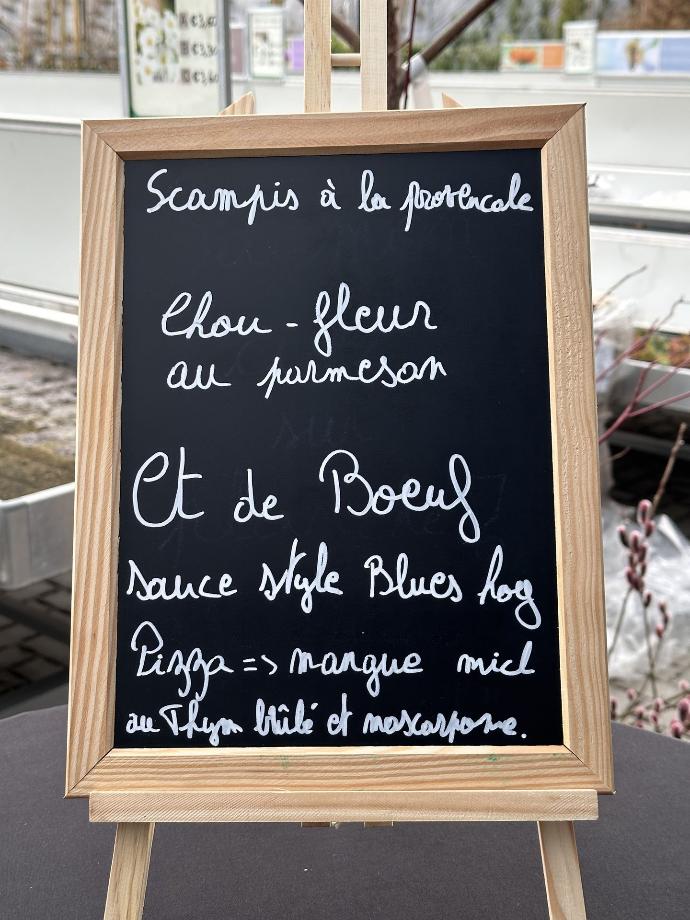 Scampis à la provencale
Chou-fleur
au parmesan
Ct de Boeuf
sauce style Blues hog
Pizza => mangue miel
au Thym brûlé et mascarpone.